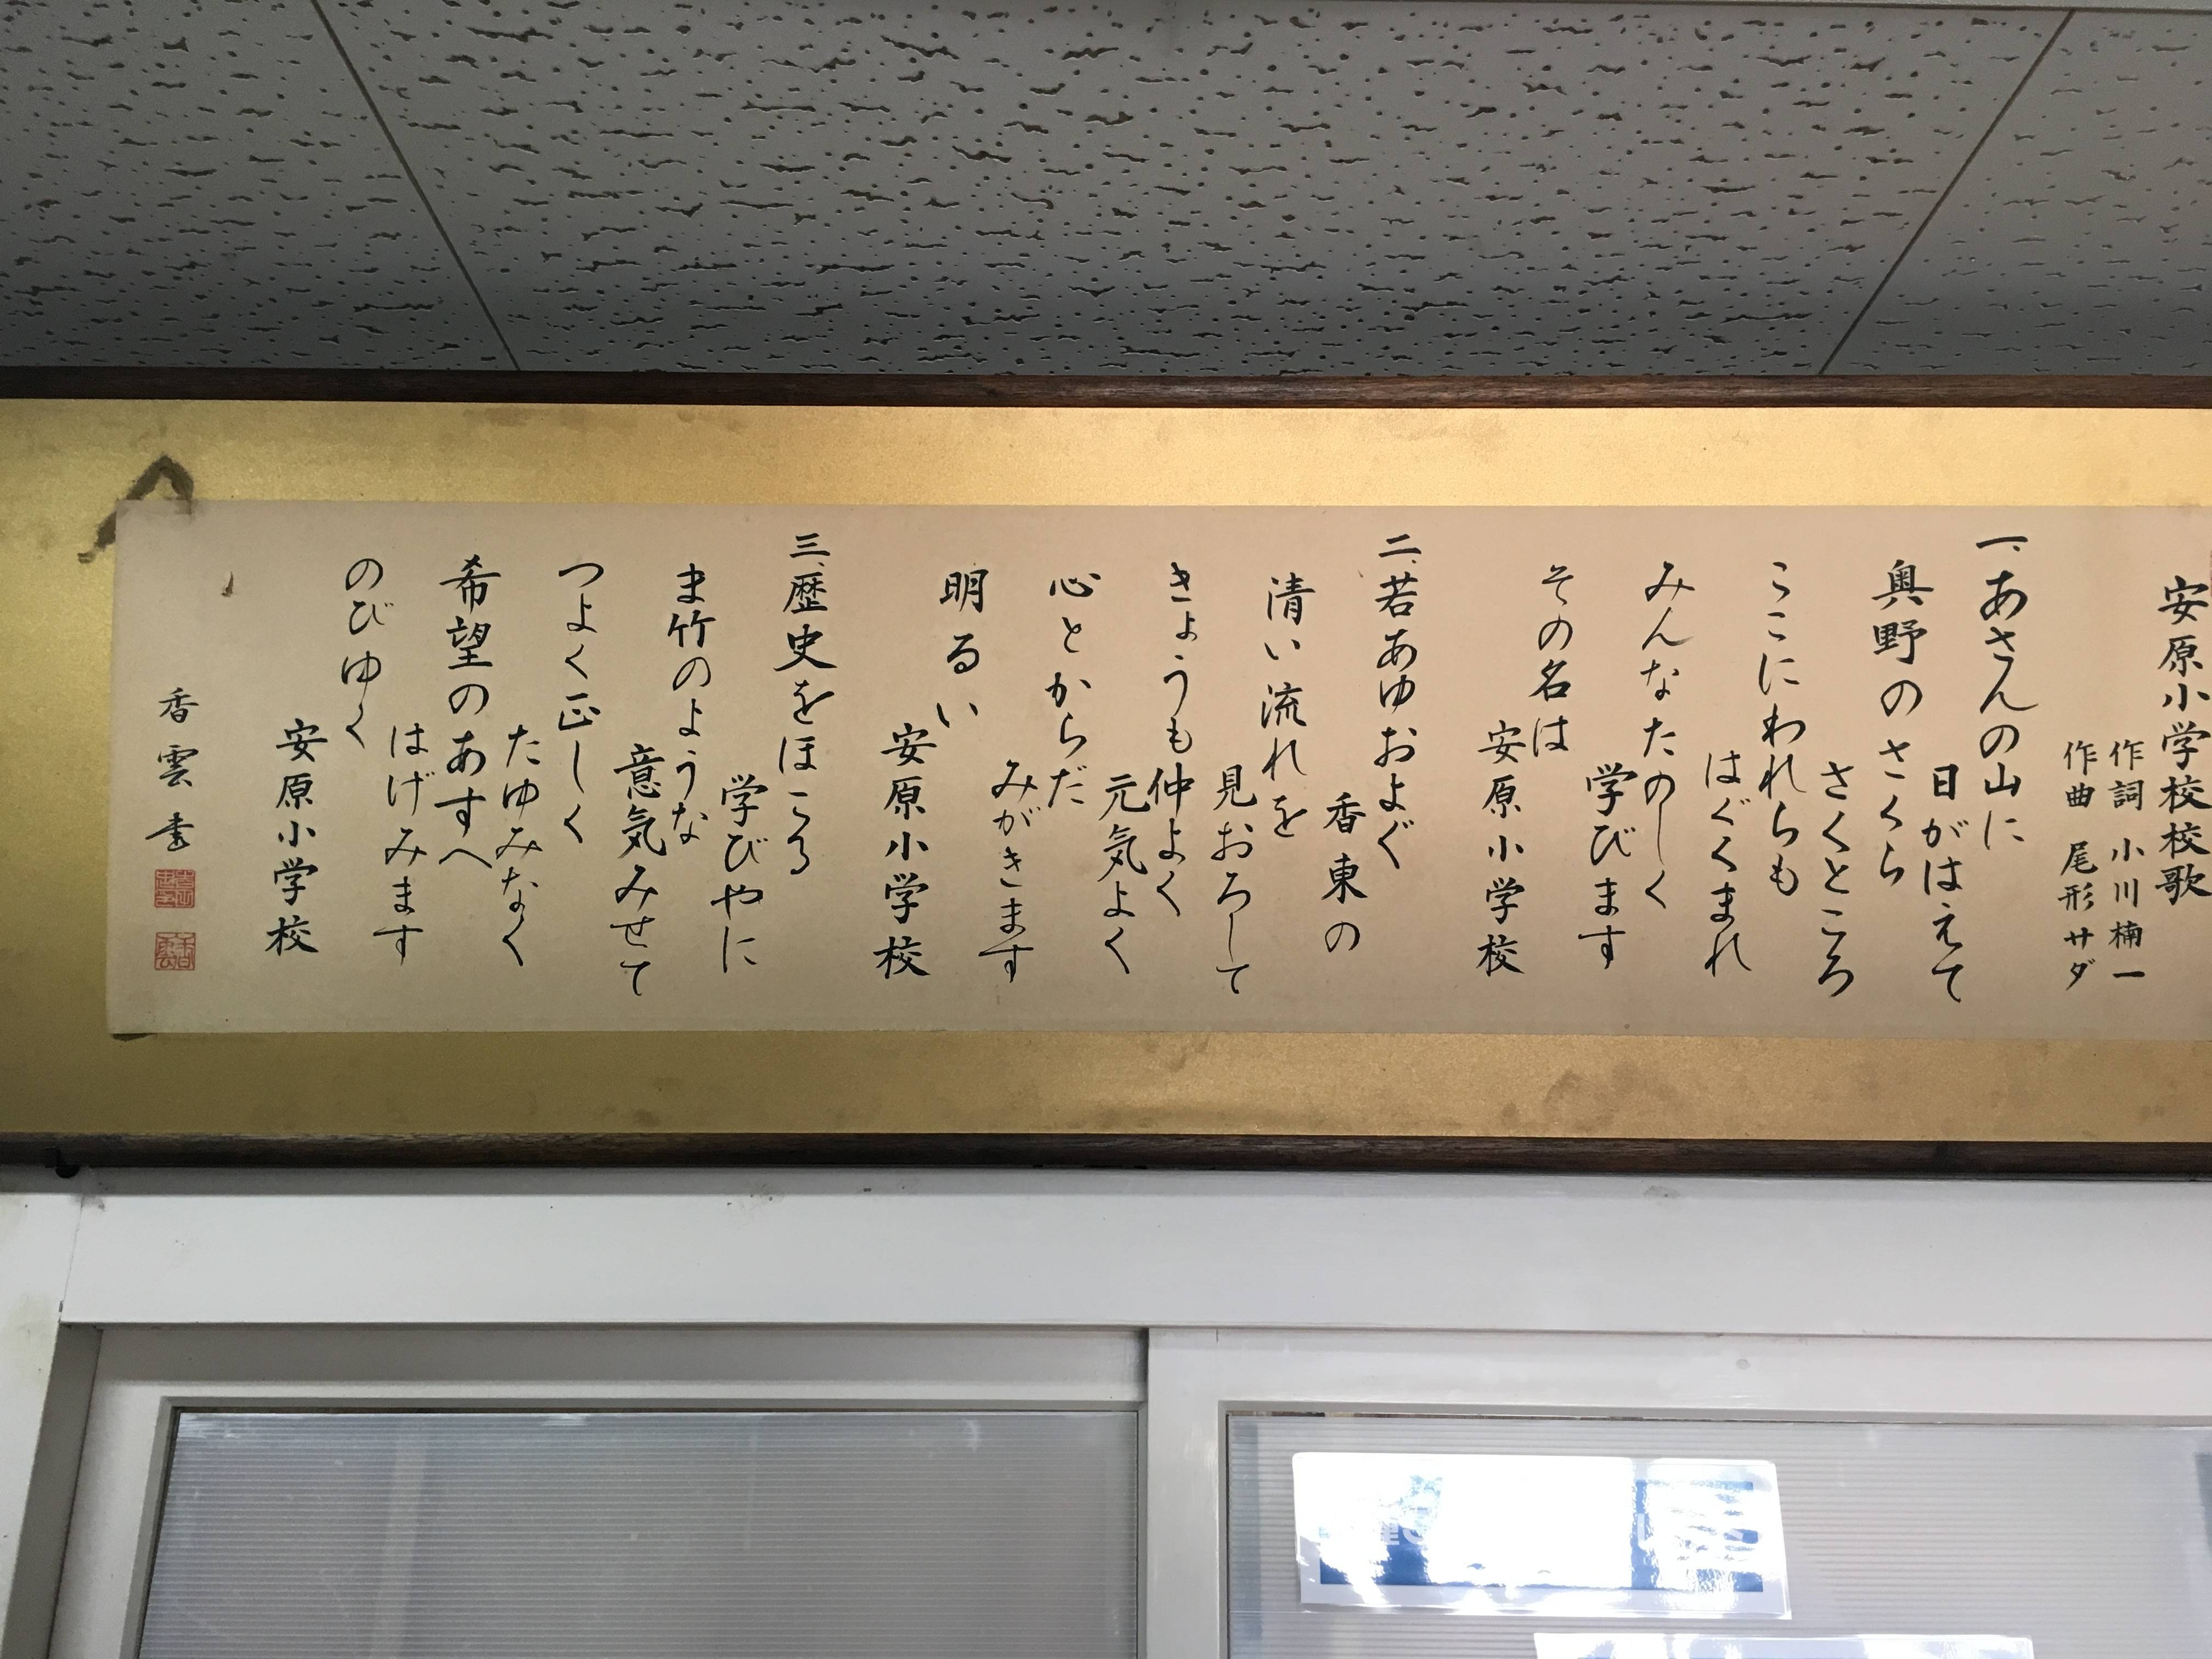 安原小学校校歌
作詞 小川楠一
作曲 尾形サダ
一、あさんの山に
日がはえて
奥野のさくら
さくところ
ここにわれらも
はぐくまれ
みんなたのしく
学びます
その名は
安原小学校
二、若あゆおよぐ
香東の
清い流れを
見おろして
きょうも仲よく
元気よく
心とからだ
みがきます
明るい
安原小学校
三、歴史をほこる
学びやに
ま竹のような
意気みせて
つよく正しく
たゆみなく
希望のあすへ
はげみます
のびゆく
安原小学校
香雲書